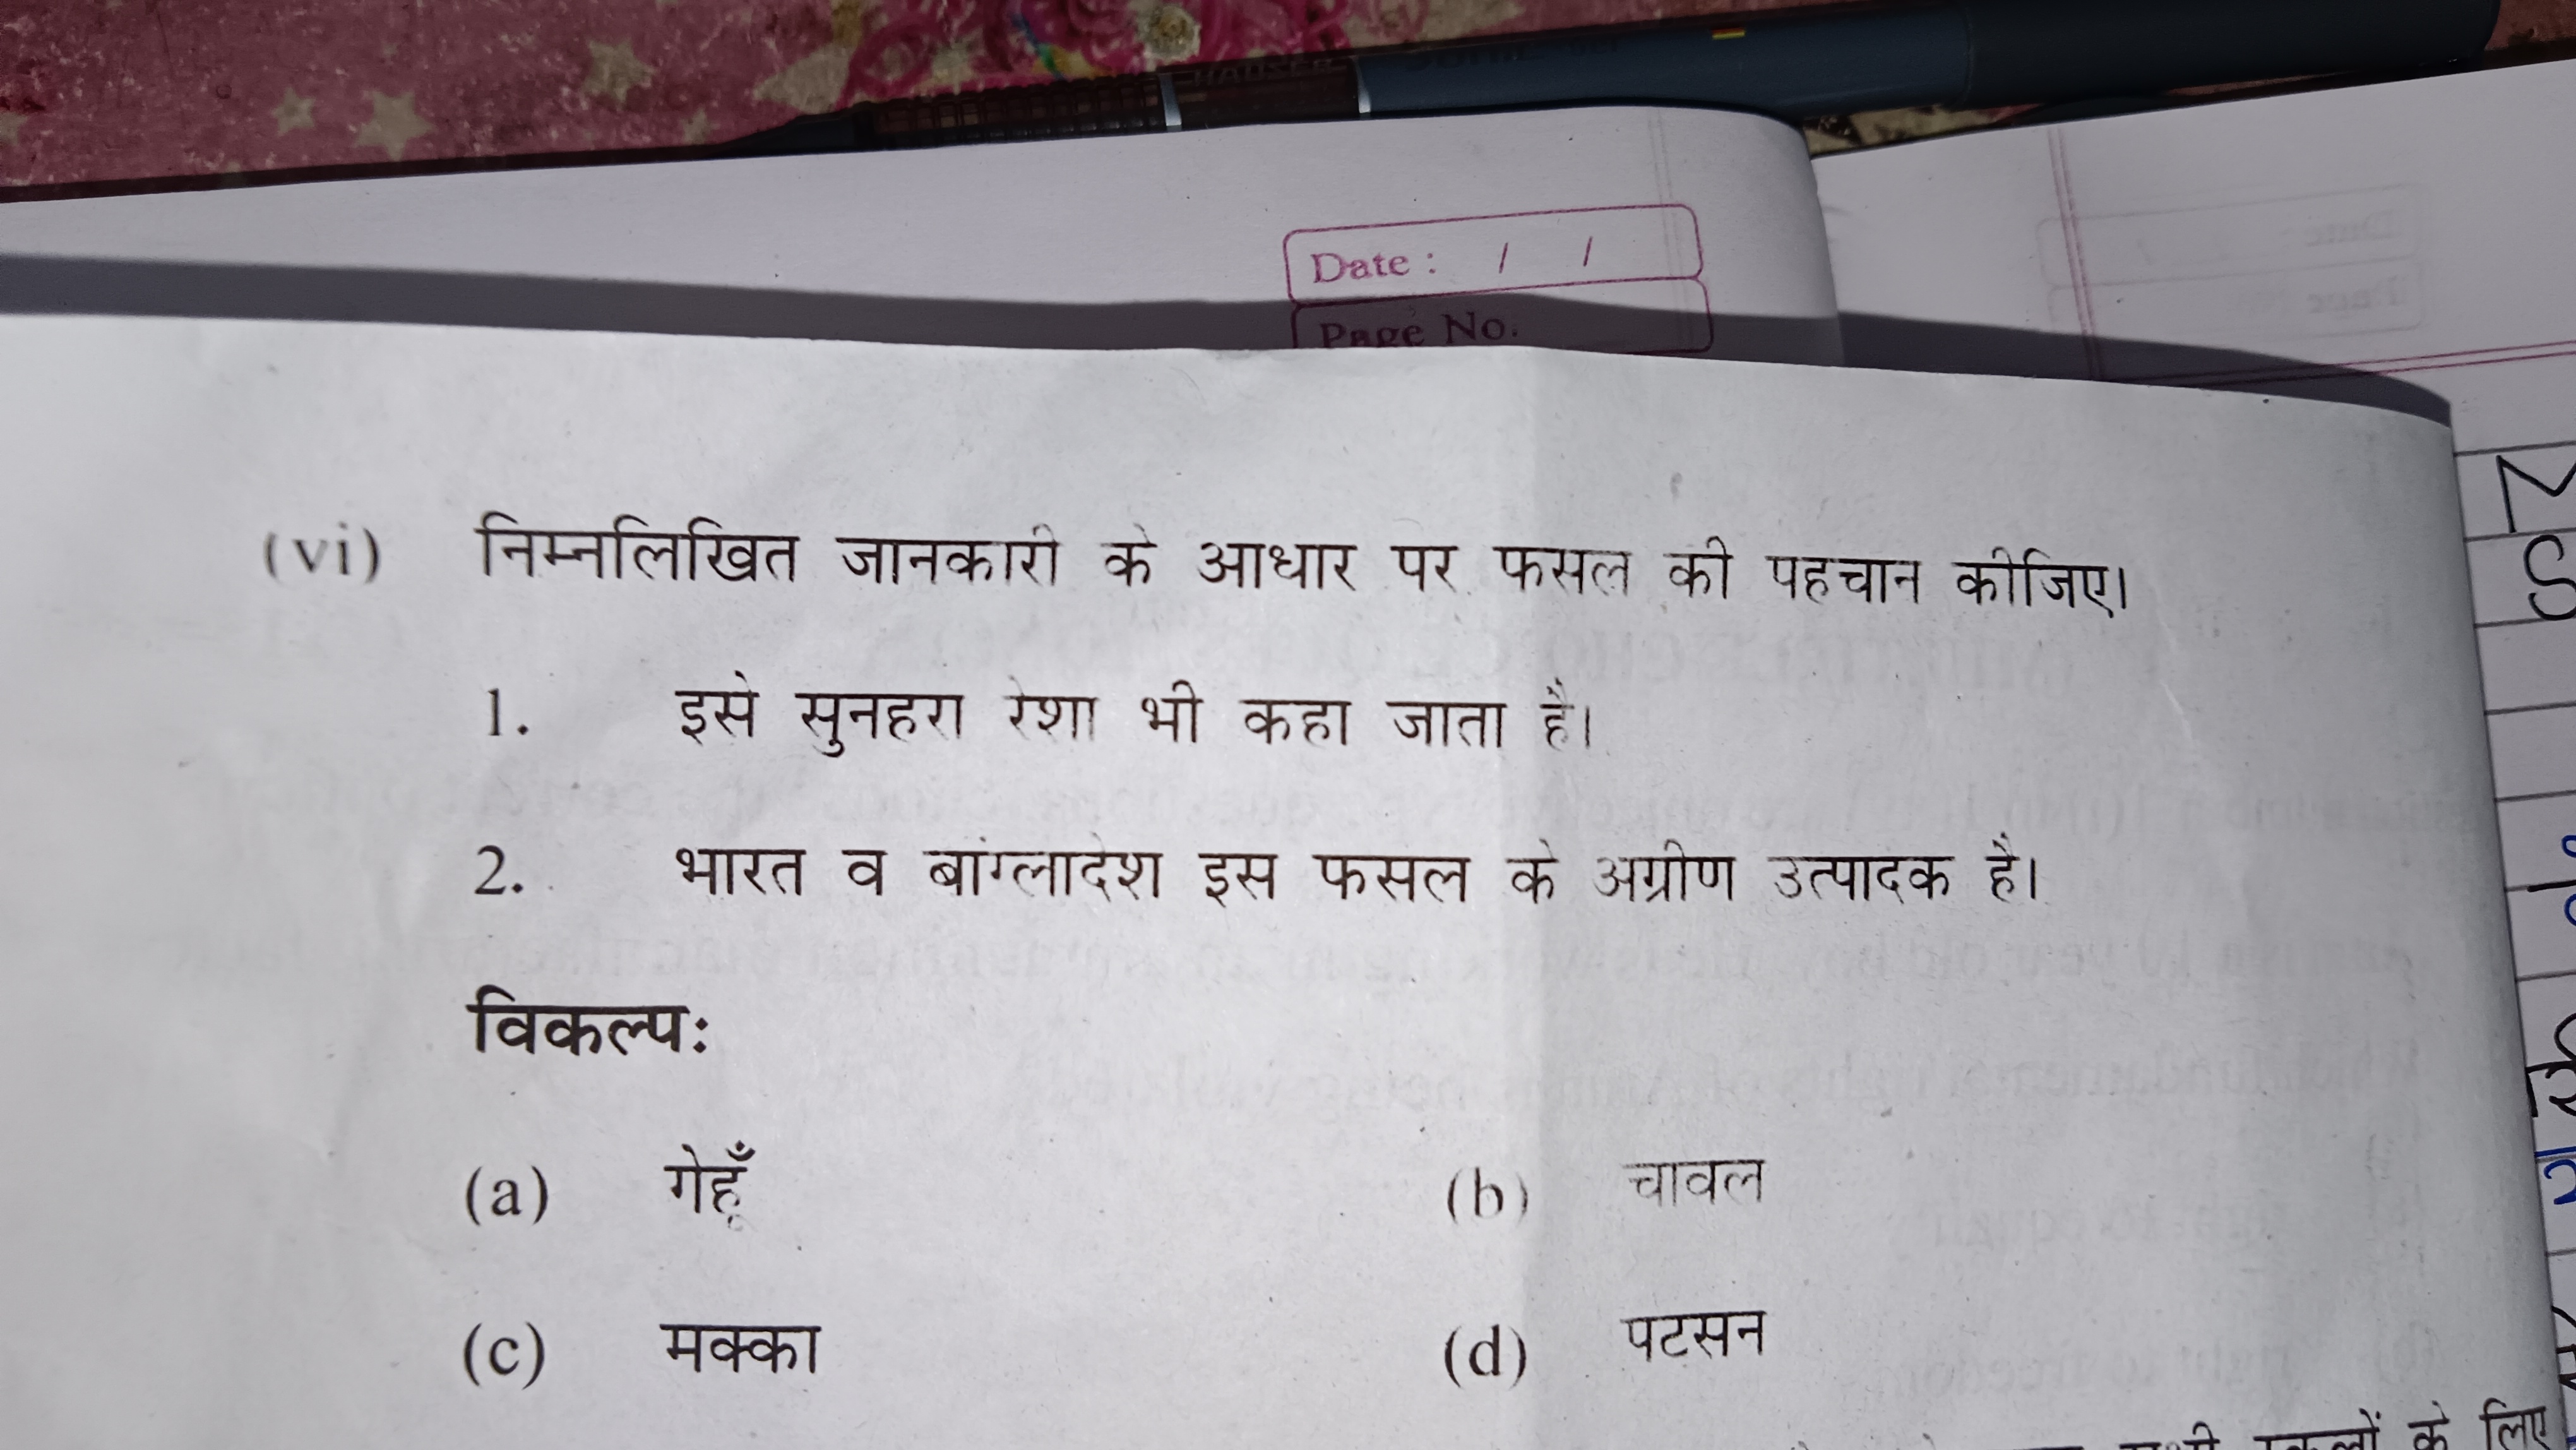 HAUSER
Date : / /
Page No.
(vi) निम्नलिखित जानकारी के आधार पर फसल की पहचान कीजिए।
1. इसे सुनहरा रेशा भी कहा जाता है।
2. भारत व बांग्लादेश इस फसल के अग्रीण उत्पादक है।
विकल्पः
(a) गेहूँ (b) चावल
(c) मक्का (d) पटसन
के लिए